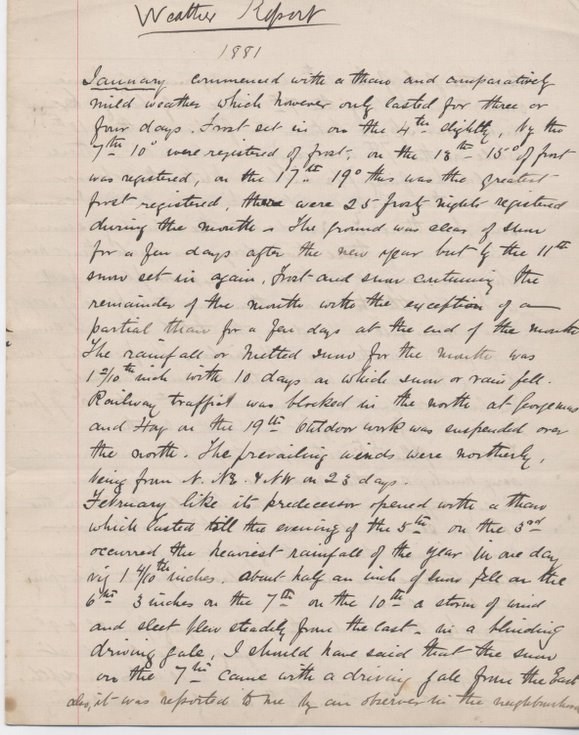 Weather Report
1881
January commenced with a thaw and comparatively
mild weather which however only lasted for three or
four days. Frost set in on the 4th slightly, by the
7th 10° were registered of frost, on the 13th 15° of frost
was registered, on the 17th 19° this was the greatest
frost registered, there were 25 frosty nights registered
during the month. The ground was clear of snow
for a few days after the new year but by the 11th
snow set in again, Frost and snow continuing the
remainder of the month with the exception of a
partial thaw for a few days at the end of the month
The rainfall or melted snow for the month was
1 2/10th inch with 10 days on which snow or rain fell.
Railway traffick was blocked in the north at Georgemas
and Hoy on the 19th Outdoor work was suspended over
the north. The prevailing winds were northerly,
being from N. NE. & NW on 23 days.
February like its predecessor opened with a thaw
which lasted till the evening of the 5th on the 3rd
occurred the heaviest rainfall of the year in one day
viz 1 4/10th inches. about half an inch of snow fell on the
6th 3 inches on the 7th on the 10th a storm of wind
and sleet blew steadily from the East - in a blinding
driving gale, I should have said that the snow
on the 7th came with a driving gale from the East
also, it was reported to me by an observer in the neighbourhood